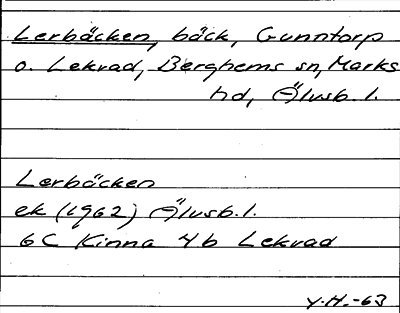 Lerbäcken, bäck, Gunntorp
o. Lekvad, Berghems sn, Marks
hd, Älvsb. l.
Lerbäcken
ek (1962) Älvsb. l.
6C Kinna 4b Lekvad
Y.H.-63